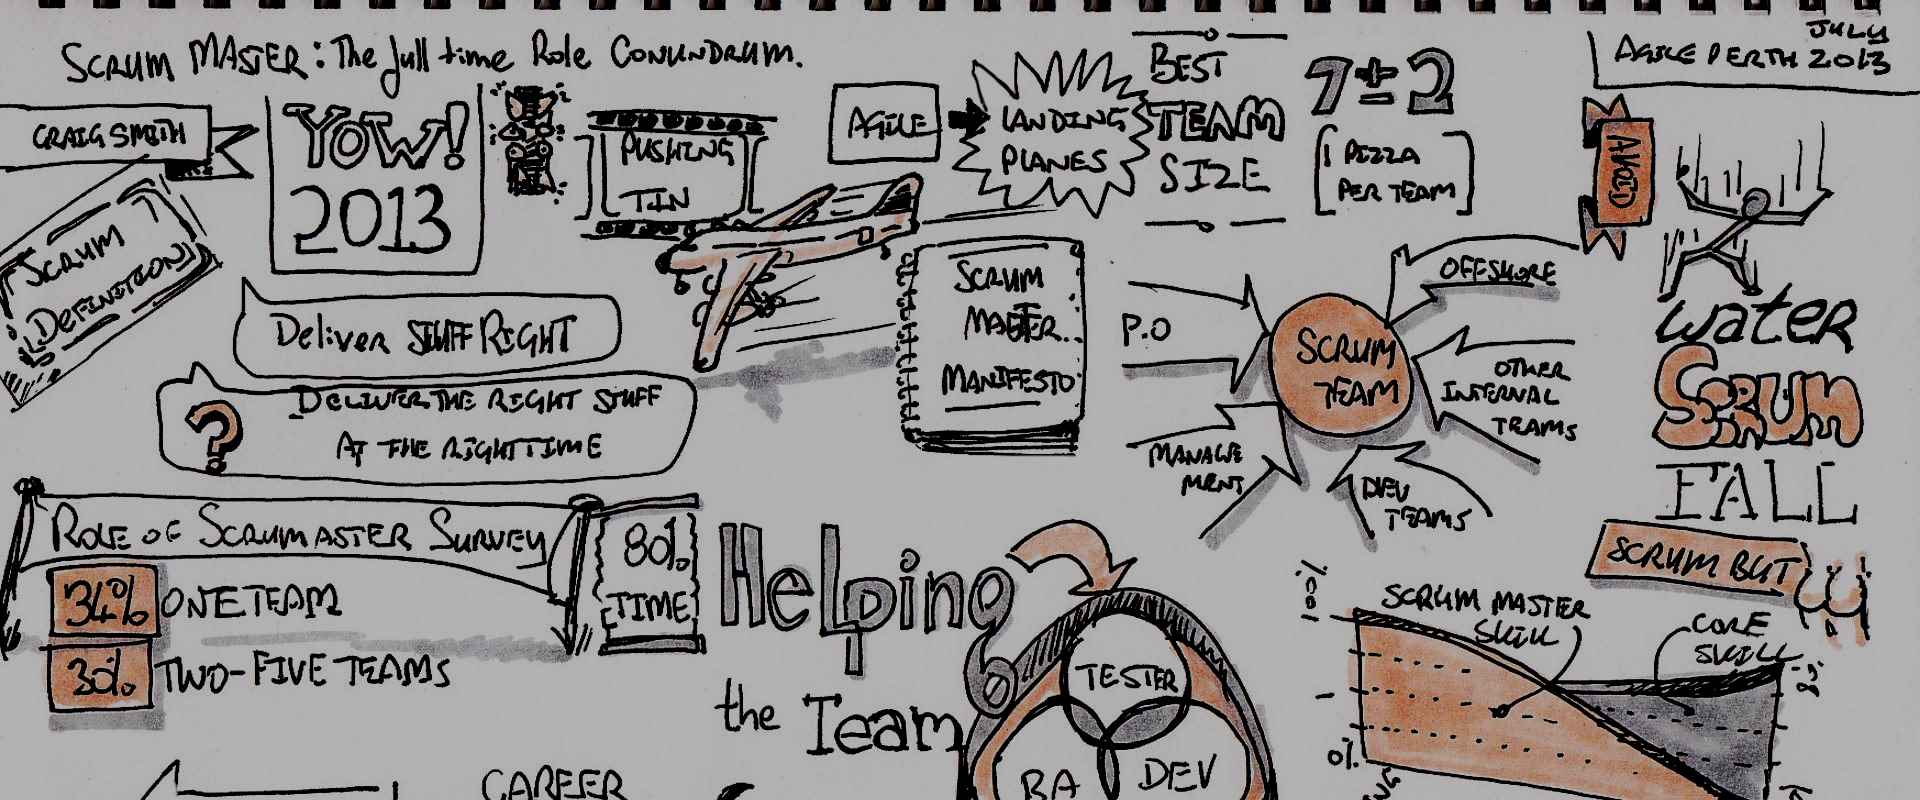 SCRUM MASTER: The full time Role CONUNDRUM.
JULY
AGILE PERTH 2013
CRAIG SMITH
YOW!
2013
PUSHING
TIN
AGILE
LANDING
PLANES
BEST
TEAM
SIZE
7±2
1 PIZZA
PER TEAM
SCRUM
DEFINITION
Deliver STUFF RIGHT
? DELIVER THE RIGHT STUFF
AT THE RIGHT TIME
SCRUM
MASTER
MANIFESTO
P.O
SCRUM
TEAM
OFFSHORE
OTHER
INTERNAL
TEAMS
MANAGE
MENT
DEV
TEAMS
water
SCRUM
FALL
SCRUM BUT
ROLE OF SCRUMASTER SURVEY
34% ONE TEAM
30% TWO-FIVE TEAMS
80%
TIME
Helping
the Team
TESTER
BA
DEV
CAREER
100%
SCRUM MASTER
SKILL
CORE
SKILL
0%